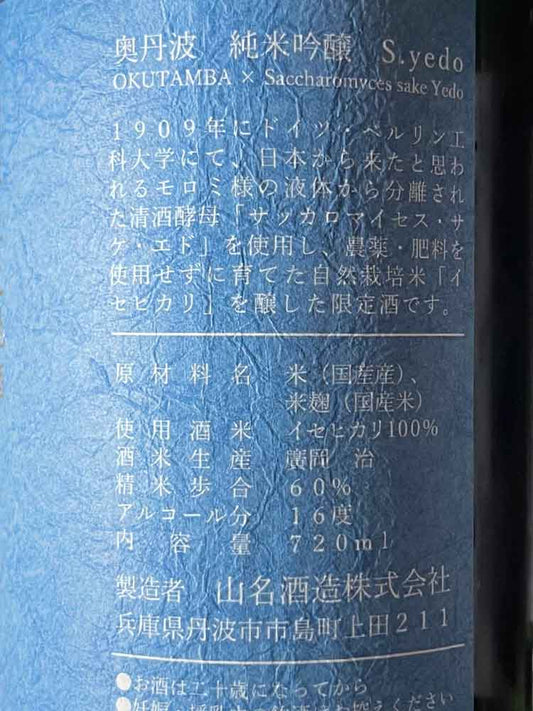 奥丹波　純米吟醸　S.yedo
OKUTAMBA × Saccharomyces sake Yedo
１９０９年にドイツ・ベルリン工
科大学にて、日本から来たと思わ
れるモロミ様の液体から分離され
た清酒酵母「サッカロマイセス・サ
ケ・エド」を使用し、農薬・肥料を
使用せずに育てた自然栽培米「イ
セヒカリ」を醸した限定酒です。
原材料名　米（国産産）、
米麹（国産米）
使用酒米　イセヒカリ100%
酒米生産　廣岡　治
精米歩合　６０％
アルコール分　１６度
内容量　７２０ml
製造者　山名酒造株式会社
兵庫県丹波市市島町上田２１１
●お酒は二十歳になってから
●妊娠・授乳中の飲酒はお控えください